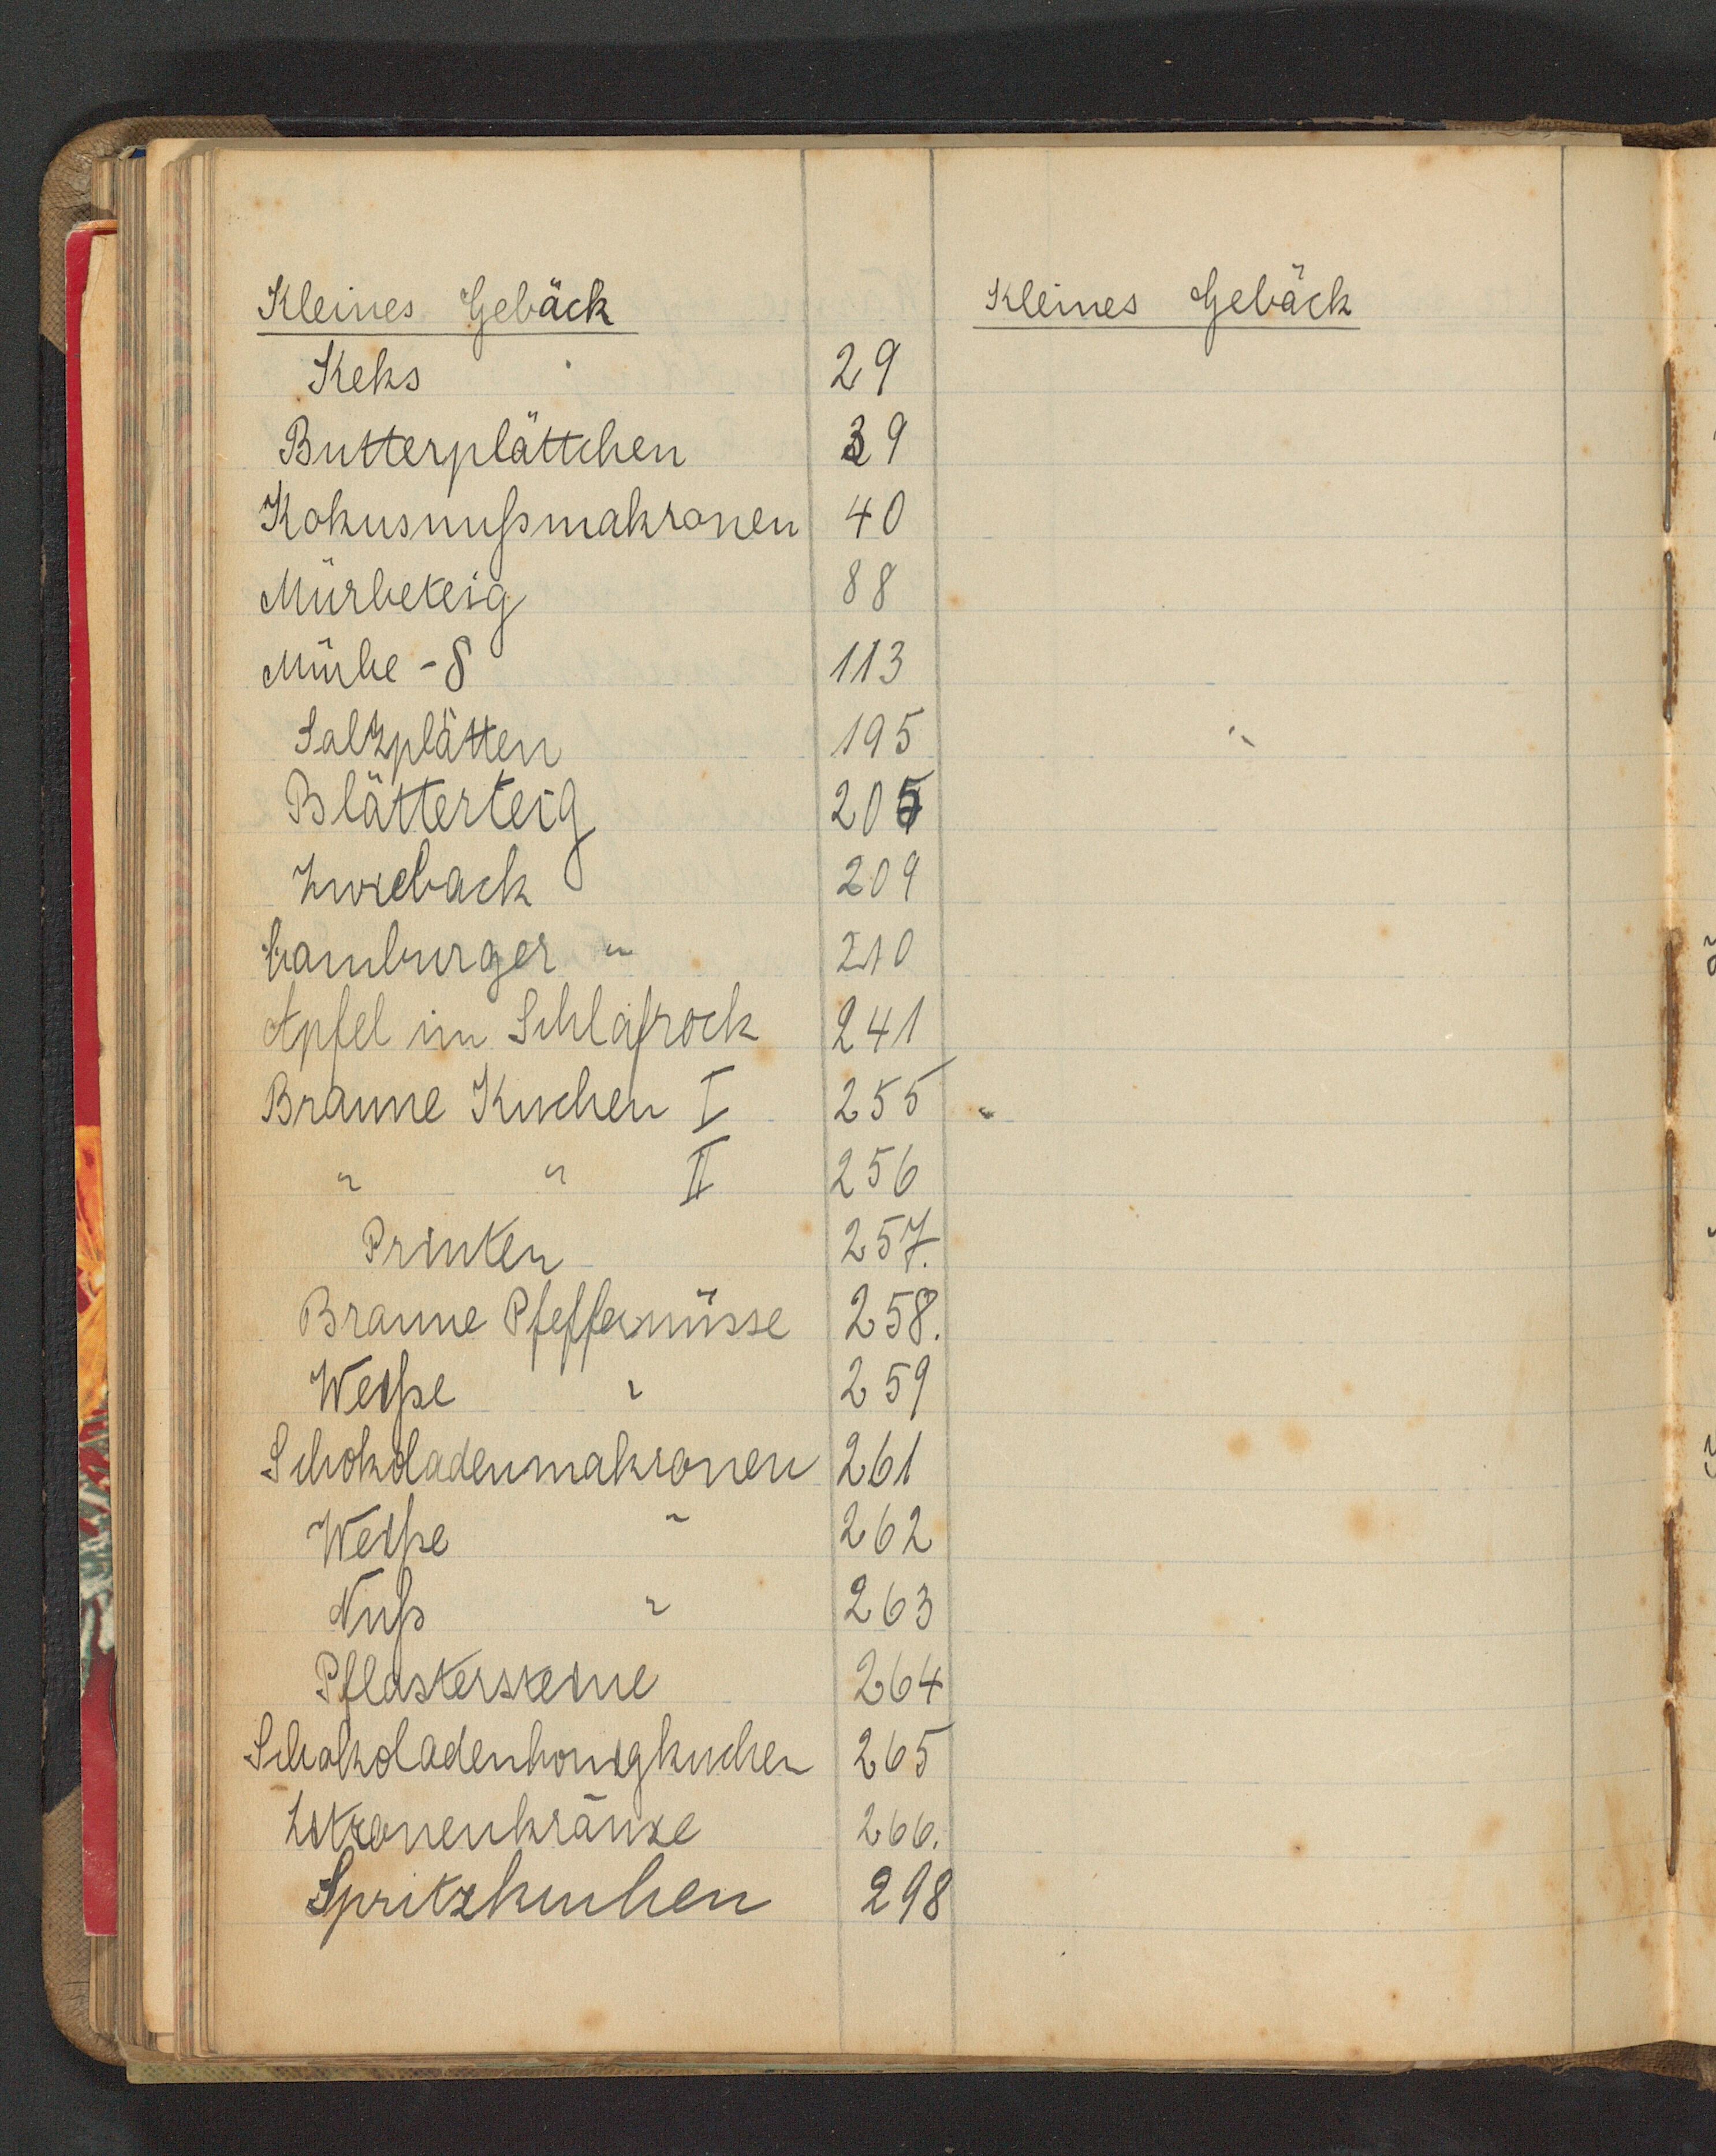 Kleines Gebäck
Keks 29
Butterplättchen 39
Kokusnußmakronen 40
Mürbeteig 88
Mürbe - 8 113
Salzplätten 195
Blätterteig 205
Zwieback 209
Hamburger " 210
Apfel im Schlafrock 241
Braune Kuchen I 255
" " II 256
Printen 257.
Braune Pfeffernüsse 258.
Weiße " 259
Schokoladenmakronen 261
Weiße " 262
Nuß " 263
Pflastersteine 264
Schokoladenhonigkuchen 265
Zitronenkränze 266.
Spritzkuchen 298
Kleines Gebäck